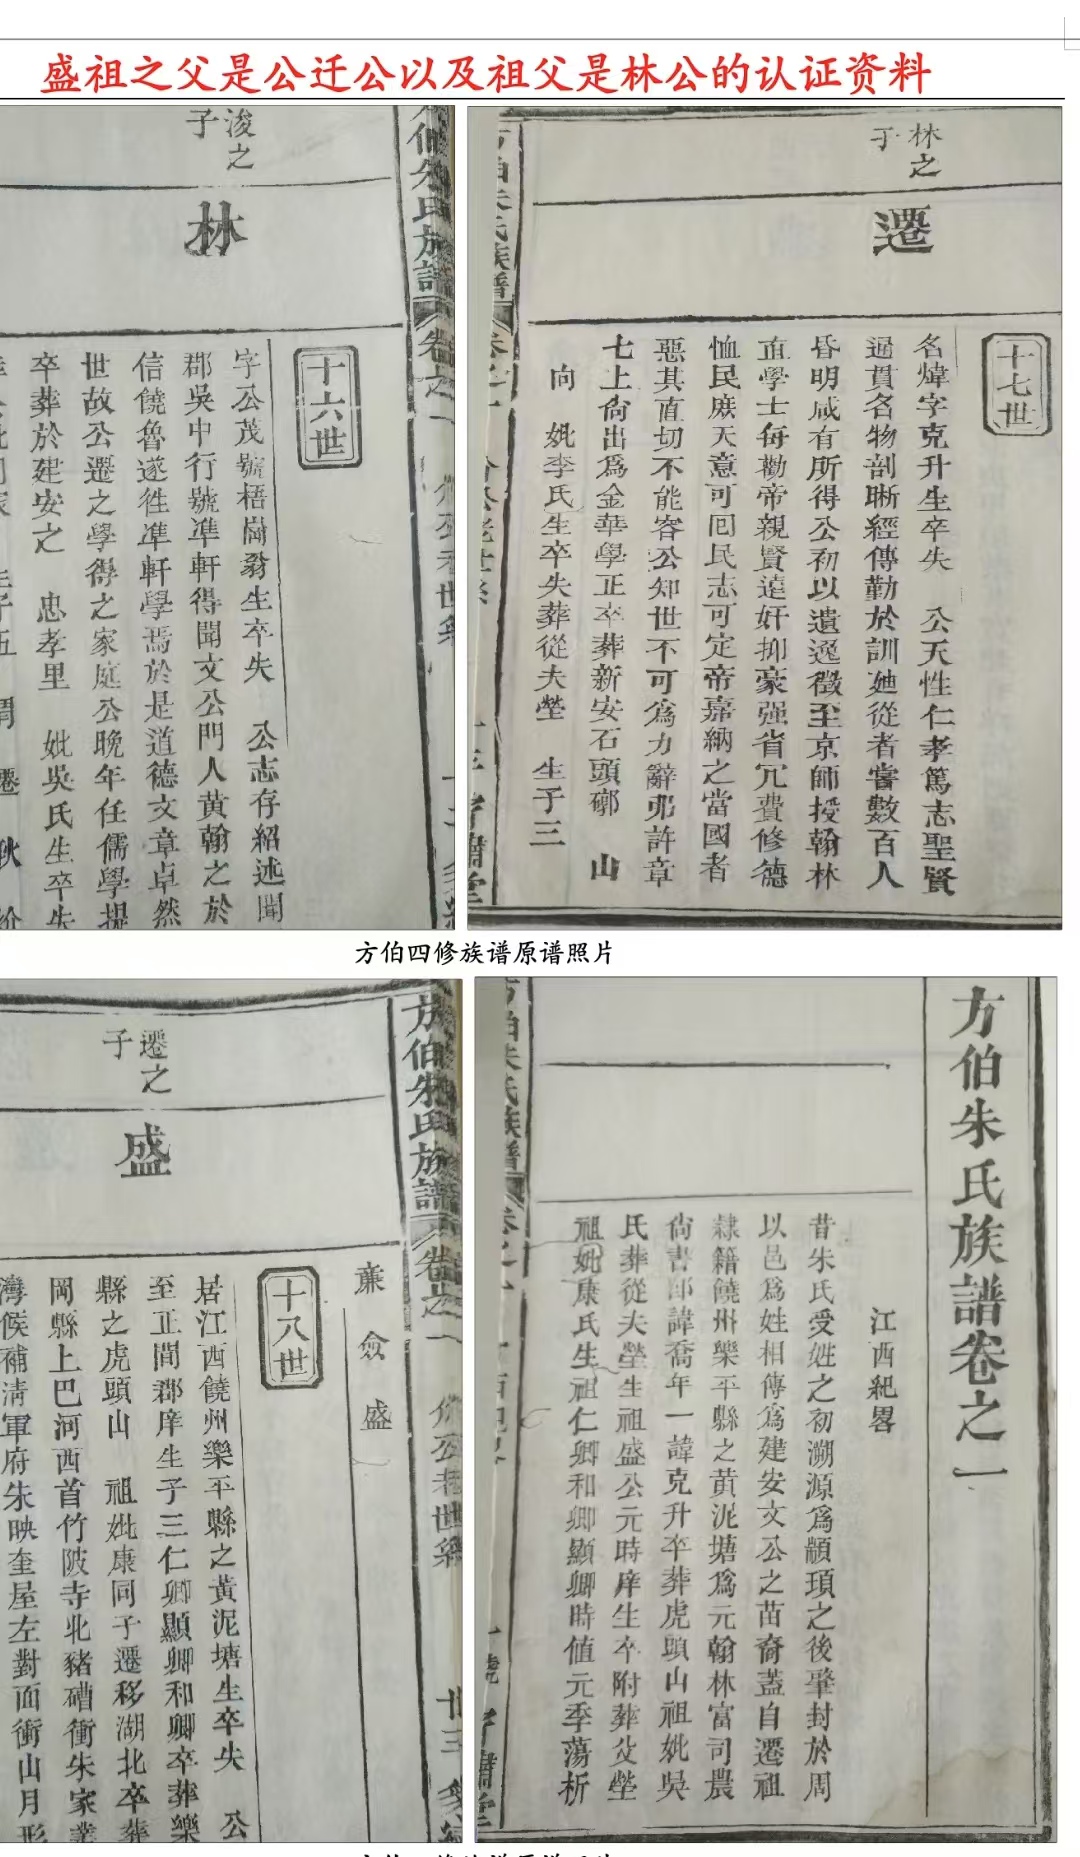 盛祖之父是公迁公以及祖父是林公的认证资料
浚之
子
林
十六世
字公茂號梧崗翁生卒失　公志存紹述聞
郡吳中行號準軒得聞文公門人黃翰之於
信饒魯遂徃準軒學焉於是道德文章卓然
世故公遷之學得之家庭公晚年任儒學提
卒葬於建安之　忠孝里　妣吳氏生卒失
方伯朱氏族譜
卷之一
林之
子
遷
十七世
名煒字克升生卒失　公天性仁孝篤志聖賢
通貫名物剖晰經傳勤於訓廸從者嘗數百人
昏明咸有所得公初以遺逸徵至京師授翰林
直學士每勸帝親賢遠奸抑豪强省冗費修德
恤民庶天意可囘民志可定帝嘉納之當國者
惡其直切不能容公知世不可爲力辭弗許章
七上尙出爲金華學正卒葬新安石頭磜　山
向　妣李氏生卒失葬從夫塋　生子三
方伯朱氏族譜
方伯四修族谱原谱照片
遷之
子
盛
亷　僉　盛
十八世
居江西饒州樂平縣之黃泥塘生卒失　公
至正間郡庠生子三仁卿顯卿和卿卒葬樂
縣之虎頭山　祖妣康同子遷移湖北卒葬
岡縣上巴河西首竹陂寺北豬磳衝朱家叢
灣候補清軍府朱映奎屋左對面衝山月形
方伯朱氏族譜
卷之一
方伯朱氏族譜卷之一
江西紀畧
昔朱氏受姓之初溯源爲顓頊之後肇封於周
以邑爲姓相傳爲建安文公之苗裔蓋自遷祖
隸籍饒州樂平縣之黃泥塘爲元翰林富司農
尙書郎諱喬年一諱克升卒葬虎頭山祖妣吳
氏葬從夫塋生祖盛公元時庠生卒附葬父塋
祖妣康氏生祖仁卿和卿顯卿時値元季蕩析
方伯朱氏族譜